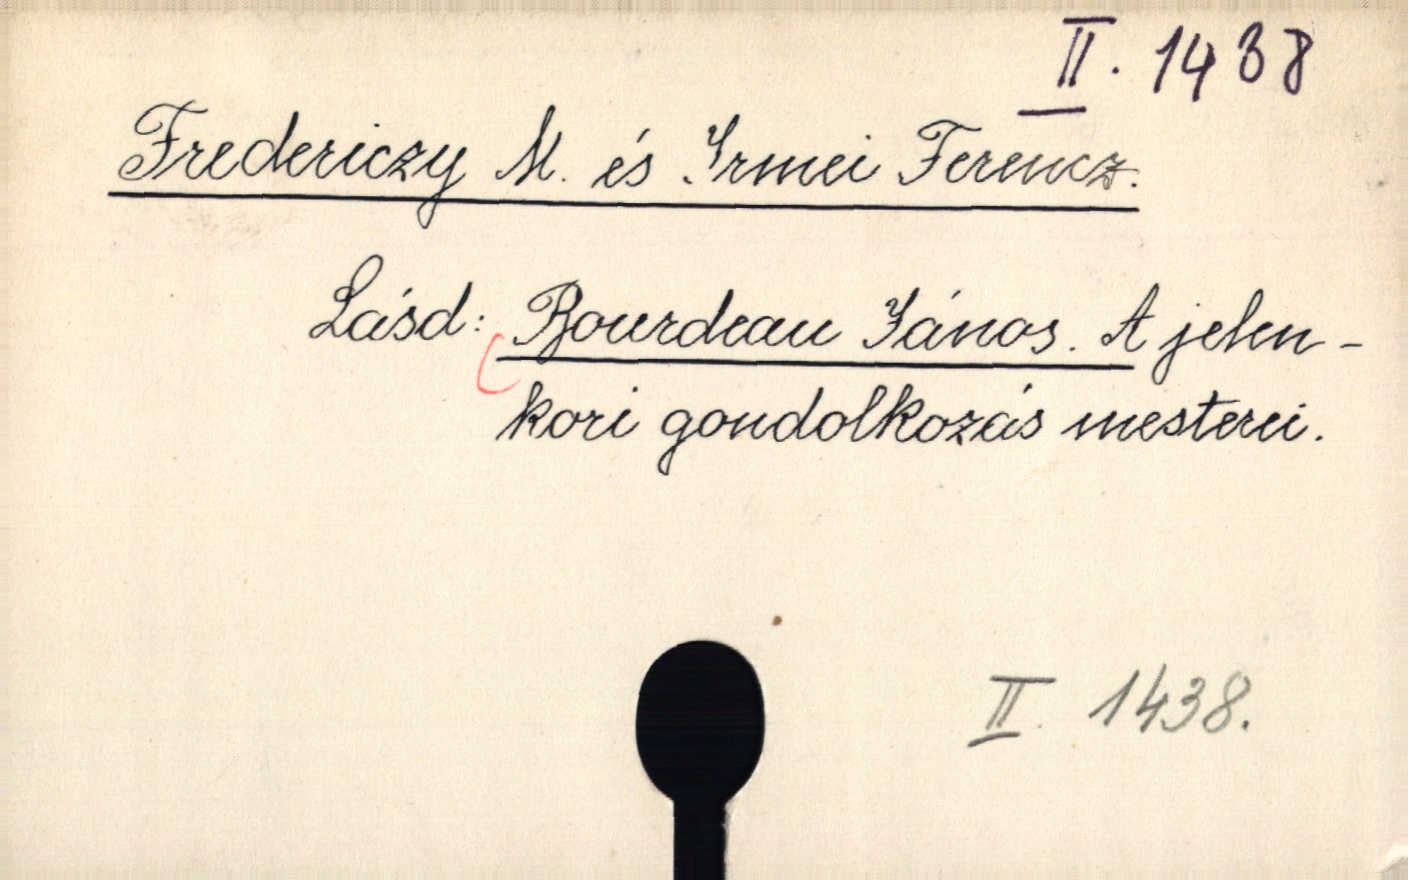 II. 1438
Fredericzy M. és Irmei Ferencz.
Lásd: Bourdeau János. A jelen-
kori gondolkozás mesterei.
II. 1438.